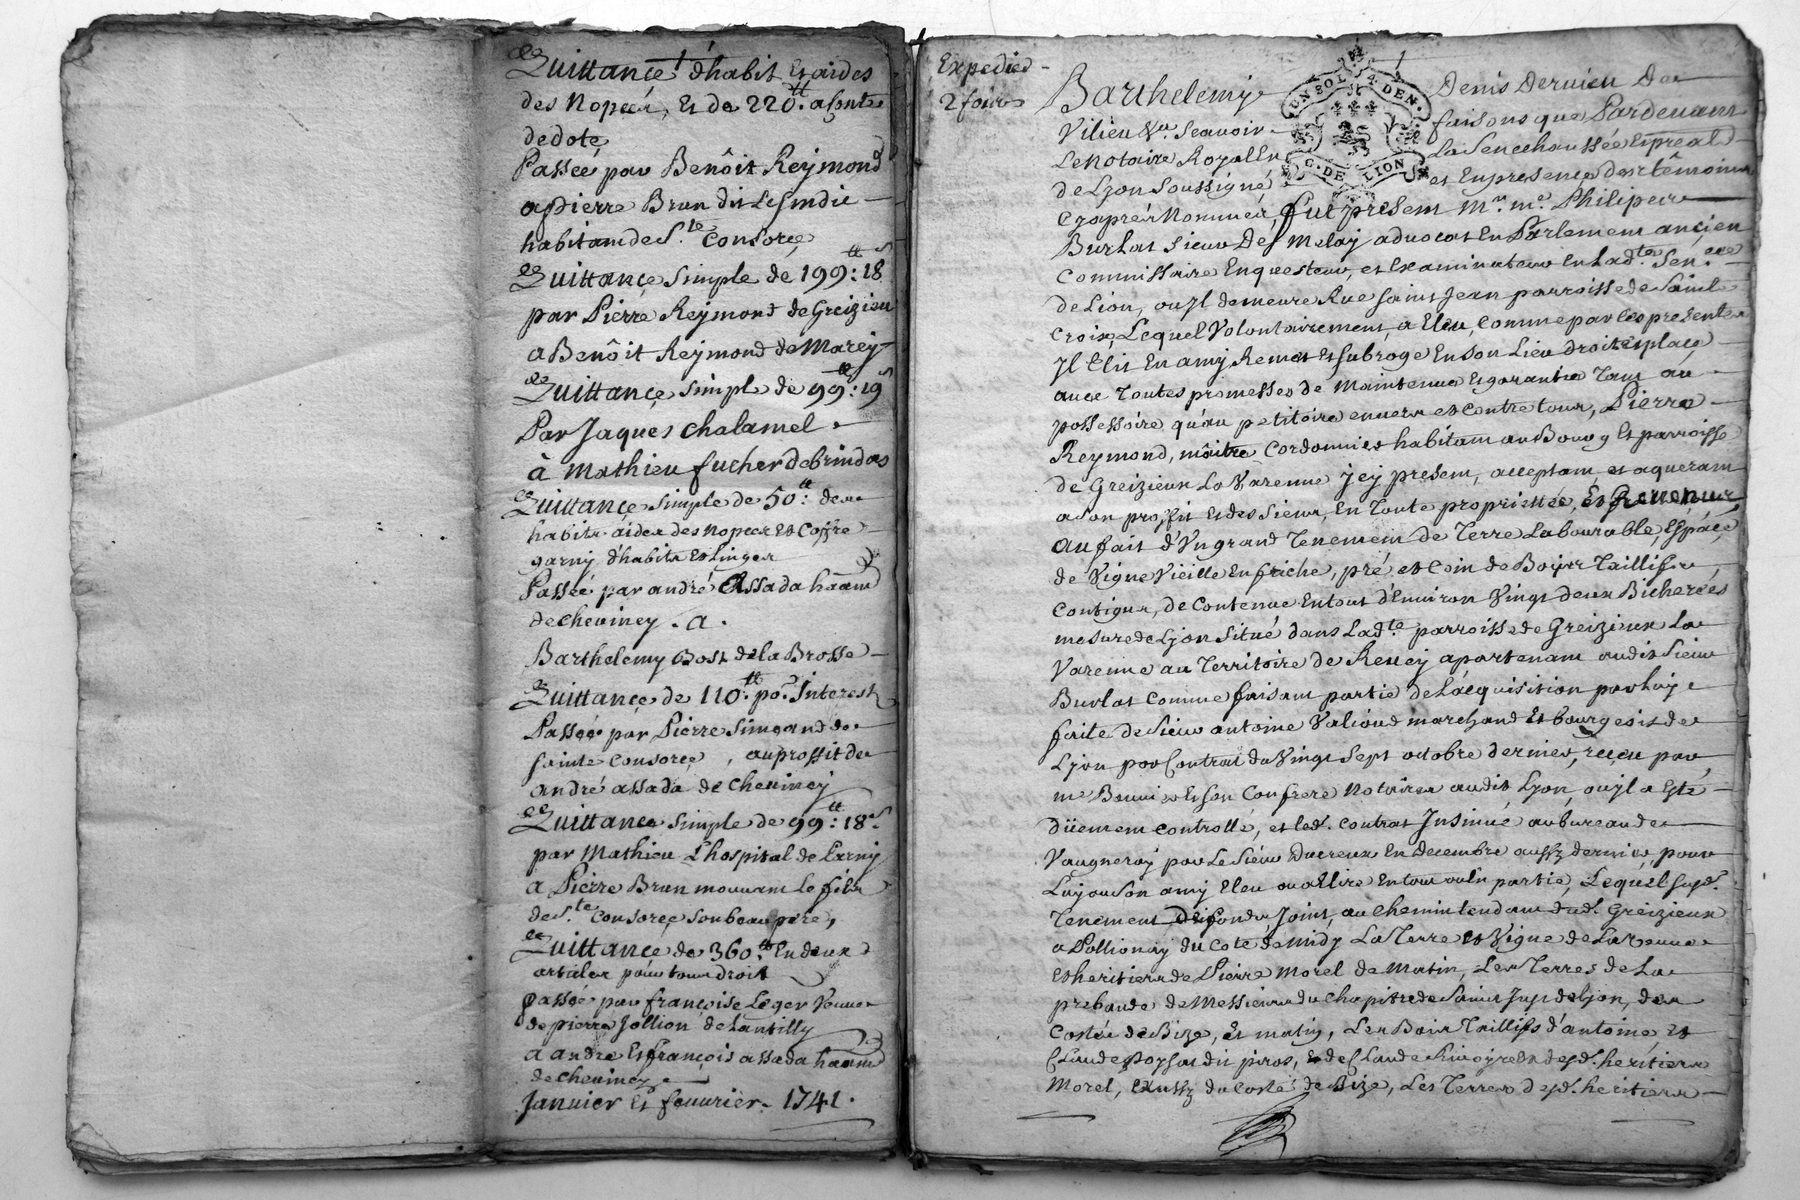 Quittance d'habit et aides
des nopces, et de 220tt. a conte
de dote
Passée par Benôit Reymond
a pierre Brun dit Lesindic
habitant de Ste. Consorçe
Quittance simple de 199tt: 18s
par Pierre Reymond de Greizieu
a Benôit Reymond de Marcy
Quittance simple de 99tt: 19s
Par Jaques chalamel
à Mathieu fucher de brindas
Quittance simple de 50tt: des
habits aides des nopces et coffre
garny d'habits et linges
Passée par andré Assada
de cheviney . a .
Barthelemy Bost de la Brosse
Quittance de 110tt. po. Interest
Passée par Pierre Simeand de
sainte consorçe, au proffit de
andré assada de Cheviney
Quittance simple de 99tt: 18s.
par Mathieu L'hospital de Larny
a Pierre Brun mouvant le fils
de Ste. Consorçe son beau pere,
Quittance de 360tt. En deux
articles pour tous droit
passée par françoise Leger veuve
de pierre Jollion de Lantilly
a andré et françois assada
de cheviney
Janvier et fevvrier - 1741.
Expedié
2 fois
UN SOL 4. DEN.
G. DE LION
Barthelemy Denis Dervieu De
Vilieu &a. scavoir faisons que Pardevant
Le Notaire Royal En La Senechaussée et preal
de Lyon soussigné et En presence des témoins
cy aprés Nommés, fut present Mr. me. Philipe
Burlat sieur De Melay advocat En Parlement ançien
Commissaire Enquesteur, et Examinateur En Ladte. Senée
de Lion, ou Jl demeure Rue saint Jean parroisse de sainte
Croix, Lequel Volontairement a Eleu, comme par Ces presentes
Jl Elit En amy Remet et subroge En son Lieu droit et place
avec Toutes promesses de Maintenue et garantie Tant au
possessoire qu'au petitoire envers et contre tous, Pierre
Reymond, maître Cordonnier habitant au Bourg et parroisse
de Greizieux La Varenne jcy present, acceptant et aquerant
a son proffit et des siens, En Toute proprietée,
au fait d'Un grand Tenement de Terre Labourable, Espace
de Vigne Vieille En friche, pré et coin de Boier Taillis
contigus, de Contenue En tout d'Environ Vingt deux Bicherées
mesure de Lyon situé dans Ladte. parroisse de Greizieux La
Varenne au Territoire de Revey apartenant audit sieur
Burlat comme faisant partie de L'acquisition par luy
faite de sieur antoine Valioud marchand et bourgeois de
Lyon par Contrat du Vingt sept octobre dernier, reçeu par
me et son Confrere Notaires audit Lyon, ou Jl a Esté
düement controllé, et led. contrat Jnsinué au bureau de
Vaugneray par Le sieur Ducreux En decembre aussy dernier, pour
Luy ou son amy Eleu ou a Elire En tout ou En partie, Lequel susd.
Tenement De fonds Joint, au chemin tendant dud. Greizieux
a Pollionay du coté de midy La Terre et Vigne de La Veuve
et heritiers de Pierre Morel de Matin, Les Terres de La
prebande de Messieurs du chapitre de saint Just de Lyon, des
costés de Bize, et matin, Les Bois Taillifs d'antoine, et
Claude dit piros, et de Claude desd. heritiers
Morel, Et aussy du Costé de Bize, Les Terres desd. heritiers